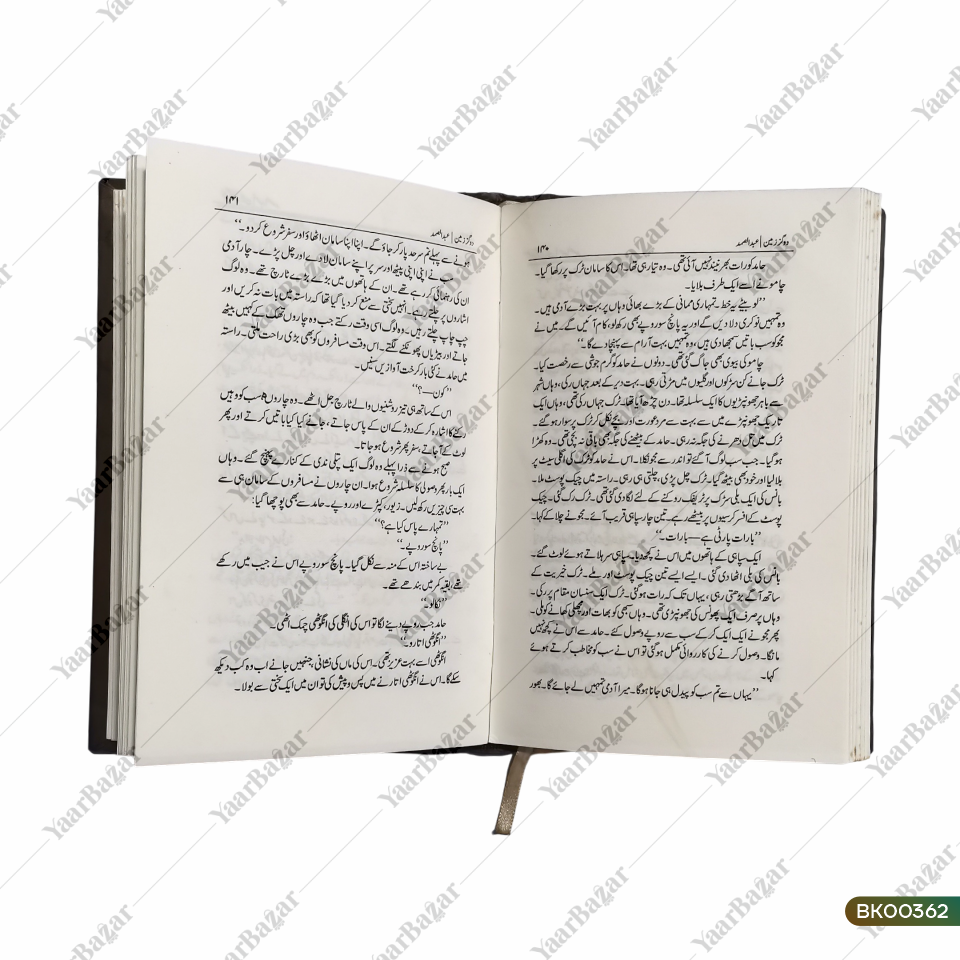 ۱۴۰
دو گز زمین | عبدالصمد
حامد کو رات بھر نیند نہیں آئی تھی۔ وہ تیار ہی تھا۔ اس کا سامان ٹرک پر رکھا گیا۔
چامو نے اسے ایک طرف بلایا۔
”لو بیٹے یہ خط۔ تمہاری ممانی کے بڑے بھائی وہاں پر بہت بڑے آدمی ہیں۔
وہ تمہیں نوکری دلا دیں گے اور یہ پانچ سو روپے بھی رکھ لو، کام آئیں گے۔ میں نے
مجو کو سب باتیں سمجھا دی ہیں، وہ تمہیں بہت آرام سے پہنچا دے گا۔“
چامو کی بیوی بھی جاگ گئی تھی۔ دونوں نے حامد کو گرم جوشی سے رخصت کیا۔
ٹرک جانے کن سڑکوں اور گلیوں میں مڑتی رہی۔ بہت دیر کے بعد جہاں رکی، وہاں شہر
سے باہر جھونپڑیوں کا ایک سلسلہ تھا۔ دن چڑھ آیا تھا۔ ٹرک جہاں رکی تھی، وہاں ایک
تاریک جھونپڑے میں سے بہت سے مرد عورت اور بچے نکل کر ٹرک پر سوار ہو گئے۔
ٹرک میں تل دھرنے کی جگہ نہ رہی۔ حامد کے بیٹھنے کی جگہ بھی باقی نہ بچی تھی۔ وہ کھڑا
ہو گیا۔ جب سب لوگ آ گئے تو اندر سے مجو نکلا۔ اس نے حامد کو ٹرک کی اگلی سیٹ پر
بلا لیا اور خود بھی بیٹھ گیا۔ ٹرک چل پڑی، چلتی ہی رہی۔ راستہ میں چیک پوسٹ ملا۔
بانس کی ایک بلی سڑک پر ٹریفک روکنے کے لئے لگا دی گئی تھی۔ ٹرک رک گئی۔ چیک
پوسٹ کے افسر کرسیوں پر بیٹھے رہے۔ تین چار سپاہی قریب آئے۔ مجو نے چلا کے کہا۔
”بارات پارٹی ہے — بارات۔“
ایک سپاہی کے ہاتھوں میں اس نے کچھ دیا۔ سپاہی سر ہلاتے ہوئے لوٹ گئے۔
بانس کی بلی اٹھا دی گئی۔ ایسے ایسے تین چیک پوسٹ اور ملے۔ ٹرک خیریت کے
ساتھ آگے بڑھتی رہی، یہاں تک کہ رات ہو گئی۔ ٹرک ایک سنسان مقام پر رکی۔
وہاں پر صرف ایک پھونس کی جھونپڑی تھی۔ وہاں سبھی کو بھات اور مچھلی کھانے کو ملی۔
پھر مجو نے ایک ایک کر کے سب سے روپے وصول کئے۔ حامد سے اس نے کچھ نہیں
مانگا۔ وصول کرنے کی کارروائی مکمل ہو گئی تو اس نے سب کو مخاطب کرتے ہوئے
کہا۔
”یہاں سے تم سب کو پیدل ہی جانا ہوگا۔ میرا آدمی تمہیں لے جائے گا۔ بھور
۱۴۱
دو گز زمین | عبدالصمد
ہونے سے پہلے تم سرحد پار کر جاؤ گے۔ اپنا اپنا سامان اٹھاؤ اور سفر شروع کر دو۔“
سب نے اپنی اپنی پیٹھ اور سر پر اپنے سامان لادے اور چل پڑے۔ چار آدمی
ان کی رہنمائی کر رہے تھے۔ ان کے ہاتھوں میں بڑے بڑے ٹارچ تھے۔ وہ لوگ
اشاروں پر چلتے رہے۔ انہیں سختی سے منع کر دیا گیا تھا کہ راستہ میں بات نہ کریں اور
چپ چاپ چلتے رہیں۔ وہ لوگ اسی وقت رکتے جب وہ چاروں تھک کے کہیں بیٹھ
جاتے اور بیڑیاں پھونکنے لگتے۔ اس وقت مسافروں کو بھی بڑی راحت ملتی۔ راستہ
میں حامد نے کئی بار کرخت آوازیں سنیں۔
”کون — ؟“
اس کے ساتھ ہی تیز روشنیوں والے ٹارچ جل اٹھتے۔ وہ چاروں سب کو وہیں
رکنے کا اشارہ کر کے دوڑ کے ان کے پاس جاتے، جانے کیا کیا باتیں کرتے اور پھر
لوٹ کے آ جاتے، سفر پھر شروع ہو جاتا۔
صبح ہونے سے ذرا پہلے وہ لوگ ایک پتلی ندی کے کنارے پہنچ گئے۔ وہاں
ایک بار پھر وصولی کا سلسلہ شروع ہوا۔ ان چاروں نے مسافروں کے سامان ہی سے
بہت سی چیزیں رکھ لیں۔ زیور، کپڑے اور روپے۔ حامد سے بھی پوچھا گیا:
”تمہارے پاس کیا ہے؟“
”پانچ سو روپے۔“
بے ساختہ اس کے منہ سے نکل گیا۔ پانچ سو روپے اس نے جیب میں رکھے
تھے، بقیہ کمر میں بندھے تھے۔
”نکالو“
حامد جب روپے دینے لگا تو اس کی انگلی کی انگوٹھی چمک اٹھی۔
”انگوٹھی اتارو۔“
انگوٹھی اسے بہت عزیز تھی۔ اس کی ماں کی نشانی جنہیں جانے اب وہ کب دیکھ
سکے گا۔ اس نے انگوٹھی اتارنے میں پس و پیش کی تو ان میں ایک سختی سے بولا۔
BK00362
YaarBazar